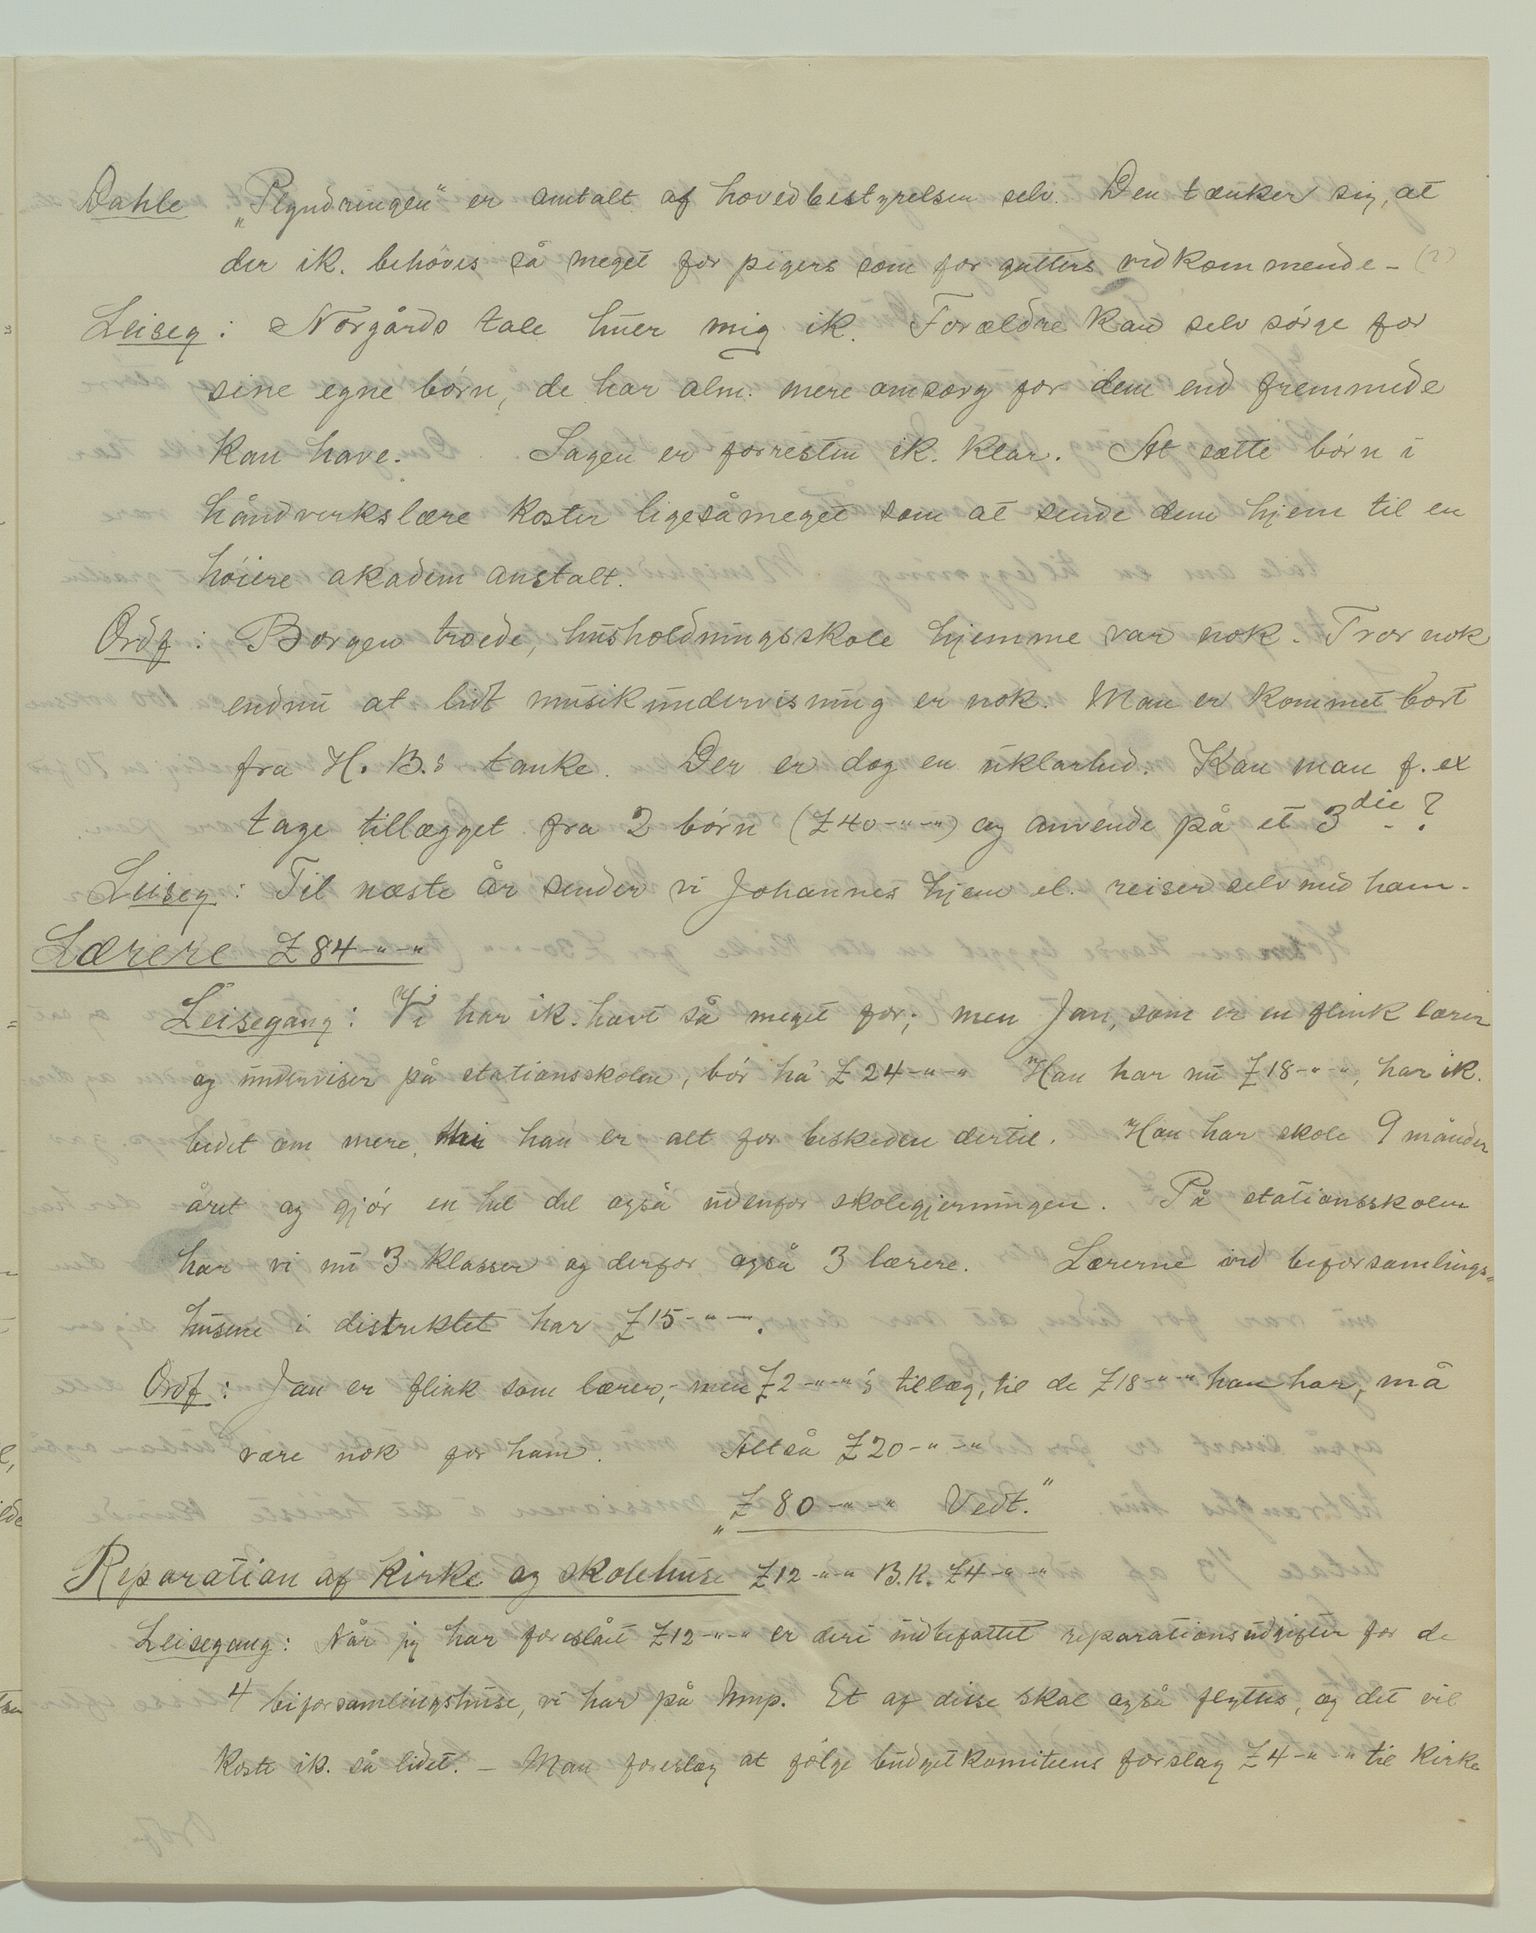 Dahle „Plyndringen" er antalt af hovedbestyrelsen selv. Den tænker sig, at
der ik. behöves så meget for pigers som for gutters vedkommende - (?)
Leiseg: Nörgårds tale huer mig ik. Forældre kan selv sörge for
sine egne börn, de har alm. mere omsorg for dem end fremmede
kan have. Sagen er forresten ik. klar. At sætte börn i
håndverkslære koster ligesåmeget som at sende dem hjem til en
höiere akadem anstalt.
Ordf: Borgen troede, husholdningsskole hjemme var nok. Tror nok
endnu at lidt musikundervisning er nok. Man er kommet bort
fra H. B.s tanke. Der er dog en uklarhed. Kan man f. ex
tage tillægget fra 2 börn (£40-"-") og anvende på et 3die?
Leiseg: Til næste år sender vi Johannes hjem el. reiser selv med ham.
Lærere £84-"-"
Leisegang: Vi har ik. havt så meget før; men Jan, som er en flink lærer
og underviser på stationsskolen, bör há £24-"-" Han har nu £18-"-", har ik.
bedet om mere, han er alt for beskeden dertil. Han har skole 9 måneder
året og gjör en hel del også udenfor skolegjerningen. På stationsskolen
har vi nu 3 klasser og derfor også 3 lærere. Lærerne ved biforsamlings-
husene i distriktet har £15-"-.
Ordf: Jan er flink som lærer; men £2-"-"s tillæg, til de £18-"-" han har, må
være nok for ham. Altså £20-"-"
„£80-"-" Vedt."
Reparation af kirke og skolehuse £12-"-" B.K. £4-"-"
Leisegang: Når jeg har foreslået £12-"-" er deri indbefattet reparationsudgifter for de
4 biforsamlingshuse, vi har på Ump. Et af disse skal også flyttes, og det vil
koste ik. så lidet. - Man foreslog at fölge budgetkomiteens forslag £4-"-" til kirke